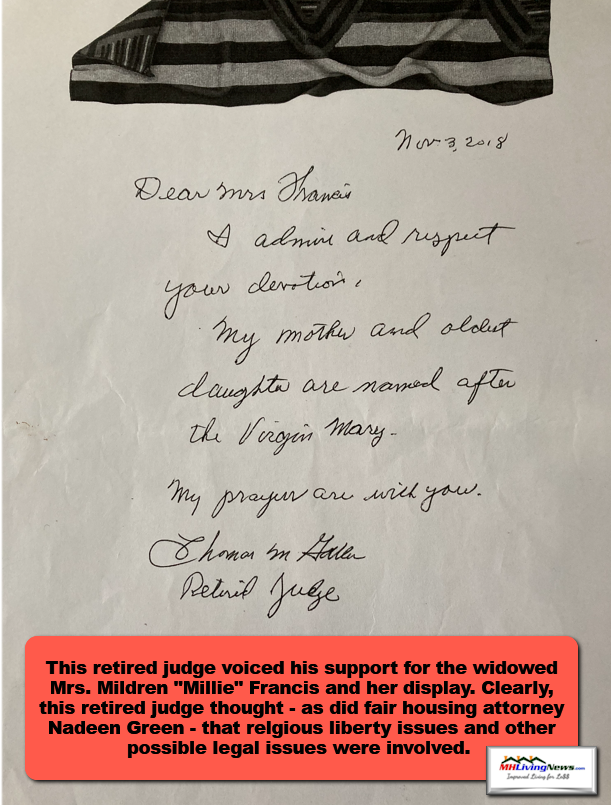 Nov 3, 2018
Dear Mrs Francis
I admire and respect
your devotion.
My mother and oldest
daughter are named after
the Virgin Mary.
My prayers are with you.
Thomas M
Retired Judge
This retired judge voiced his support for the widowed
Mrs. Mildren "Millie" Francis and her display. Clearly,
this retired judge thought - as did fair housing attorney
Nadeen Green - that relgious liberty issues and other
possible legal issues were involved.
MHLivingNews.com
Improved Living for Le$$